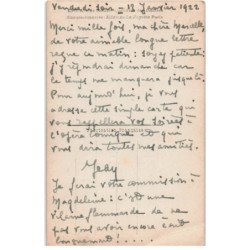 Vendredi soir — 13 Janvier 1922
Merci mille fois, ma chère Marcelle,
de votre aimable longue lettre
reçue ce matin; soyez patiente
j'y répondrai dimanche car
le temps me manquera jusque là
Pour aujourd'hui, je vous
adresse cette simple carte qui
vous rappellera vos soirées
l'Opéra Comique et qui
vous dira toutes mes amitiés.
Je ferai votre commission à
Magdeleine: c'est une
vilaine flemmarde de ne
pas vous avoir encore écrit
longuement